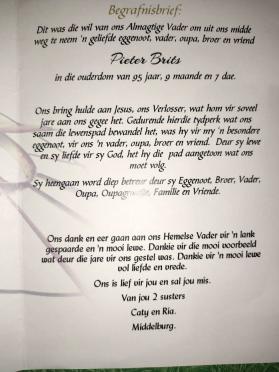 Begrafnisbrief:
Dit was die wil van ons Almagtige Vader om uit ons midde
weg te neem 'n geliefd eggenoot, vader, oupa, broer en vriend
Pieter Brits
in die ouderdom van 95 jaar, 9 maande en 7 dae.
Ons bring hulde aan Jesus, ons Verlosser, wat hom vir soveel
jare aan ons gegee het. Gedurende hierdie tydperk wat ons
saam die lewenspad bewandel het, was hy vir my 'n besondere
eggenoot, vir ons 'n vader, oupa, broer en vriend. Deur sy lewe
en sy liefde vir sy God, het hy die pad aangetoon wat ons
moet volg.
Sy heengaan word diep betreur deur sy Eggenoot, Broer, Vader,
Oupa, Familie en Vriende.
Ons dank en eer gaan aan ons Hemelse Vader vir 'n lank
gespaarde en 'n mooi lewe. Dankie vir die mooi voorbeeld
wat deur die jare vir ons gestel was. Dankie vir 'n mooi lewe
vol liefde en vrede.
Ons is lief vir jou en sal jou mis.
Van jou 2 susters
Caty en Ria.
Middelburg.